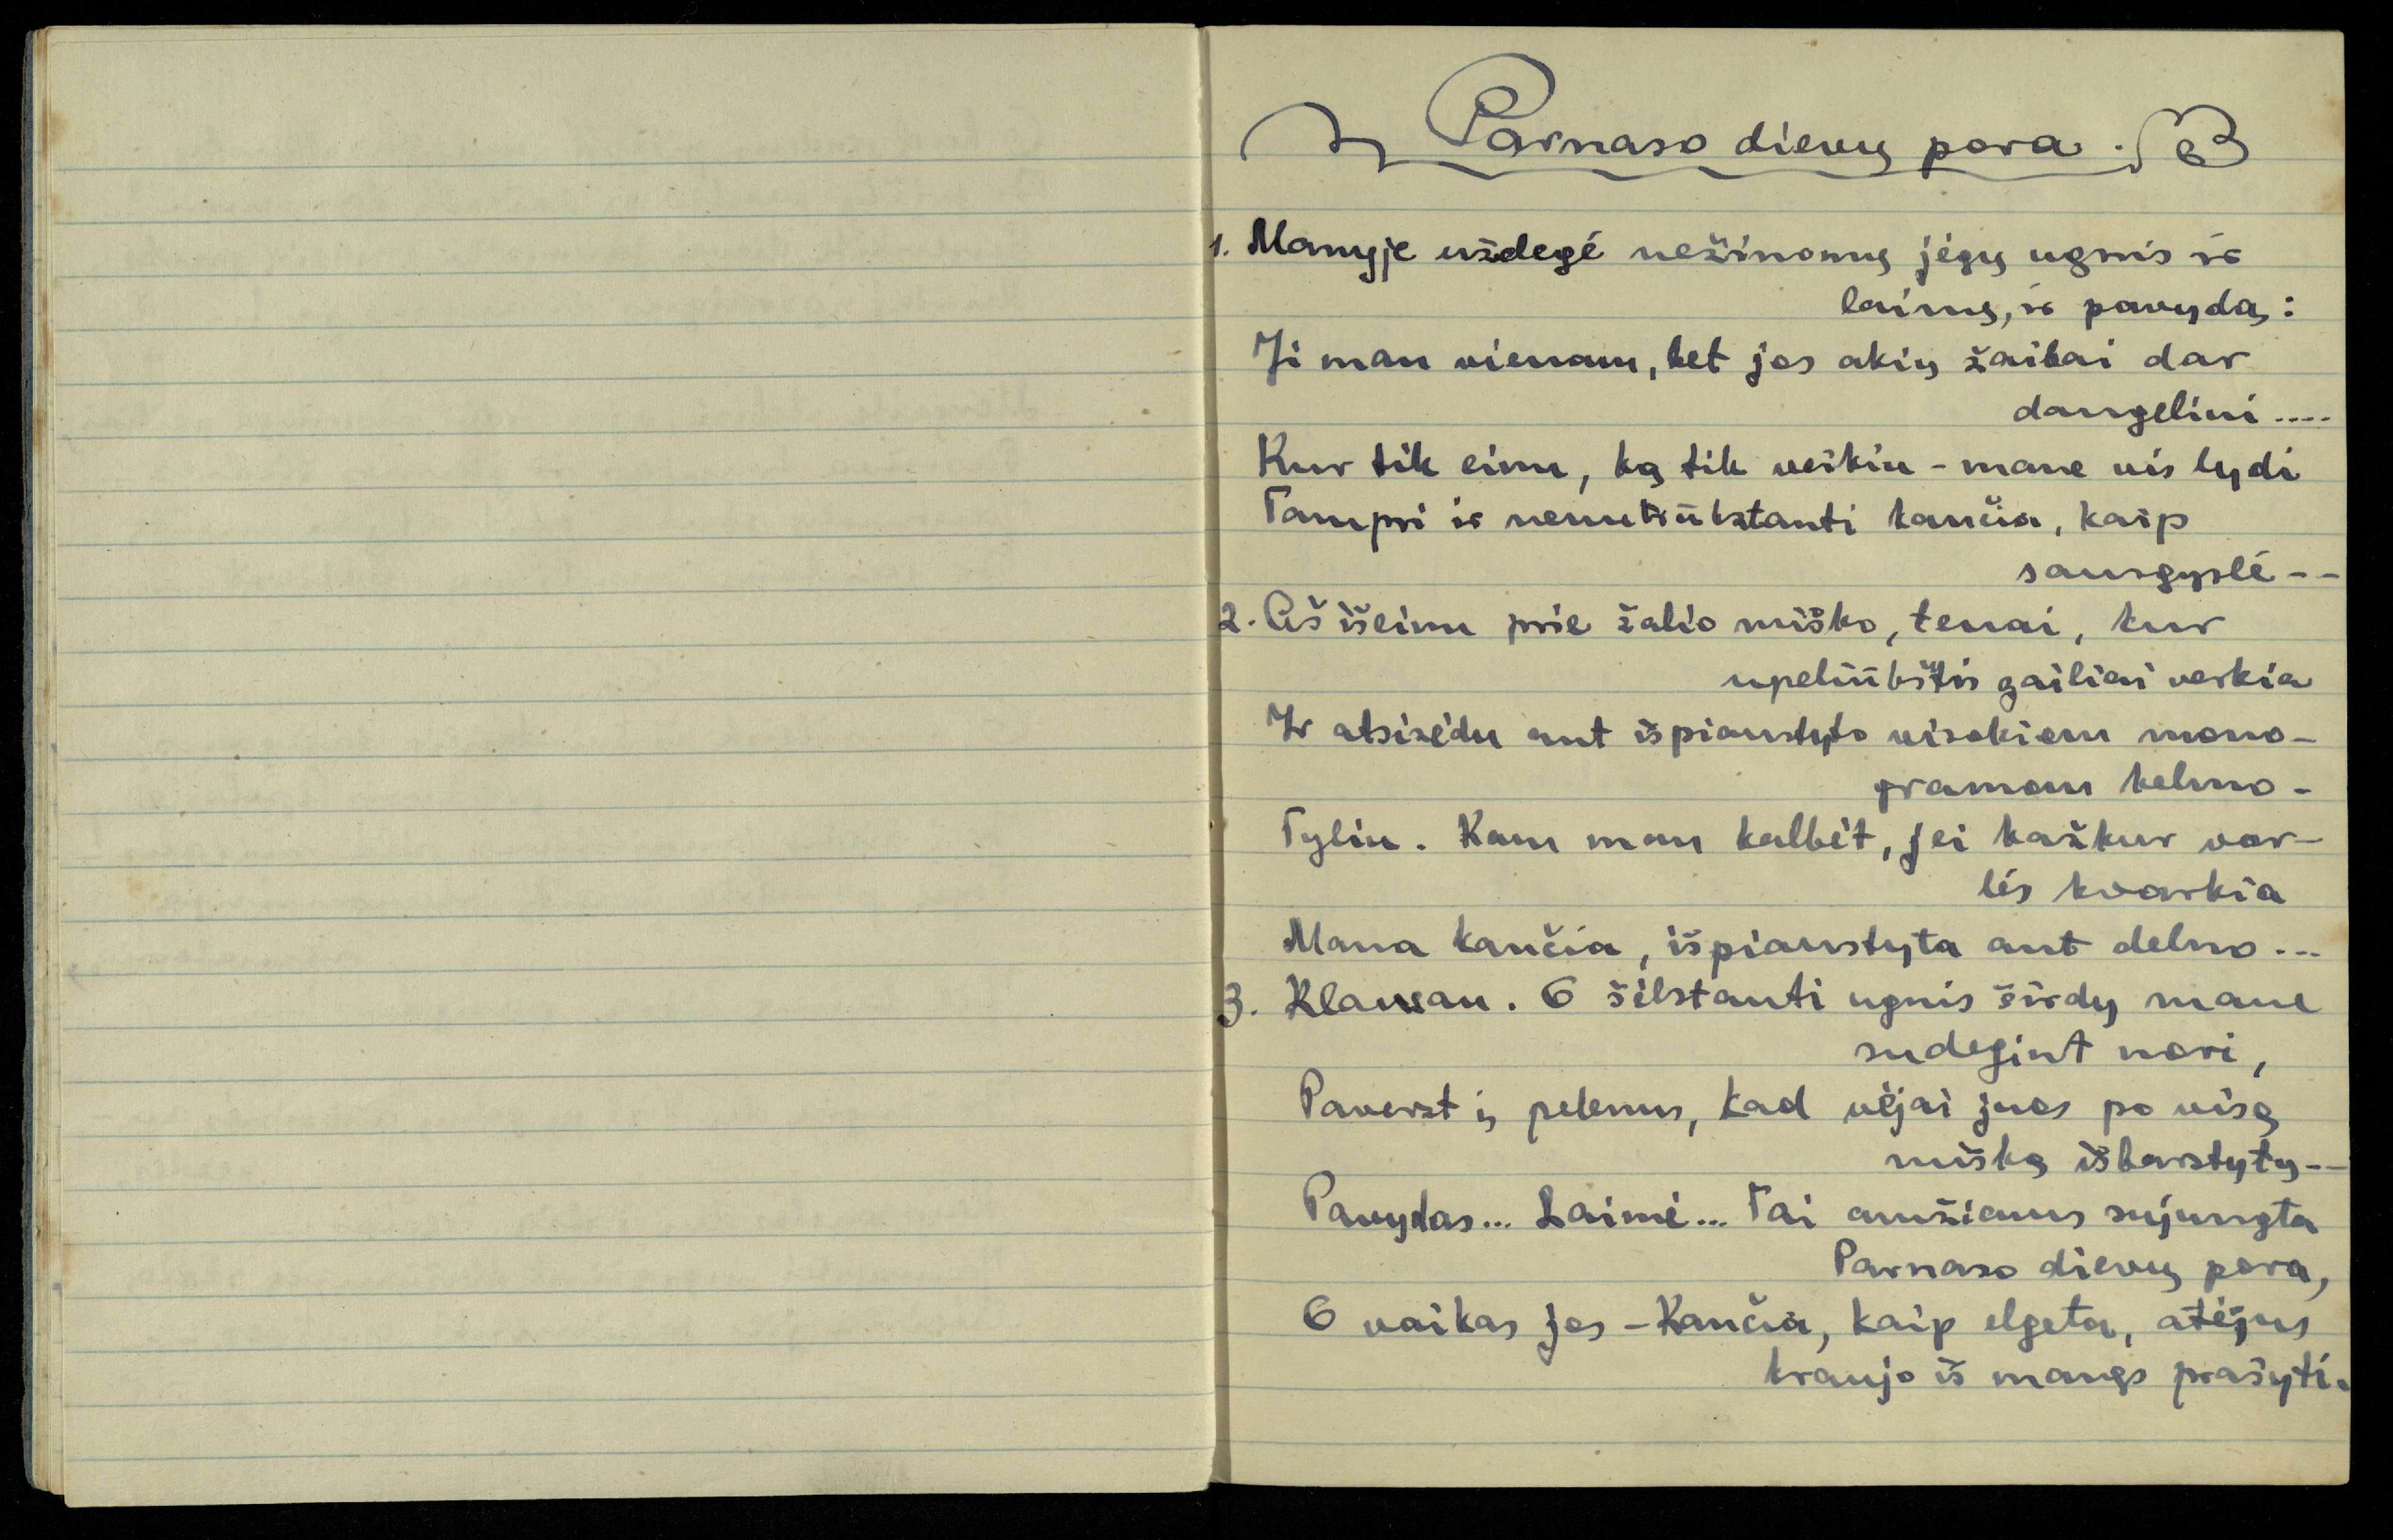 Parnaso dievų pora.
1. Manyje uždegė nežinomų jėgų ugnis ir
laimę, ir pavydą:
Ji man vienam, bet jos akių žaibai dar
daugeliui....
Kur tik einu, ką tik veikiu - mane vis lydi
Tampri ir nenutrūkstanti kančia, kaip
sausgyslė--
2. Aš išeinu prie žalio miško, tenai, kur
upeliūkštis gailiai verkia
Ir atsisėdu ant išpiaustyto visokiom mono-
gramom kelmo-
Tyliu. Kam man kalbėt, jei kažkur var-
lės kvarkia
Mana kančia, išpiaustyta ant delno...
3. Klausau. O šilstanti ugnis širdy mane
sudegint nori,
Paverst į pelenus, kad vėjai juos po visą
mišką išbarstytų--
Pavydas... Laimė... Tai amžiams sujungta
Parnaso dievų pora,
O vaikas jos - Kančia, kaip elgeta, atėjus
kraujo iš manęs prašyti.